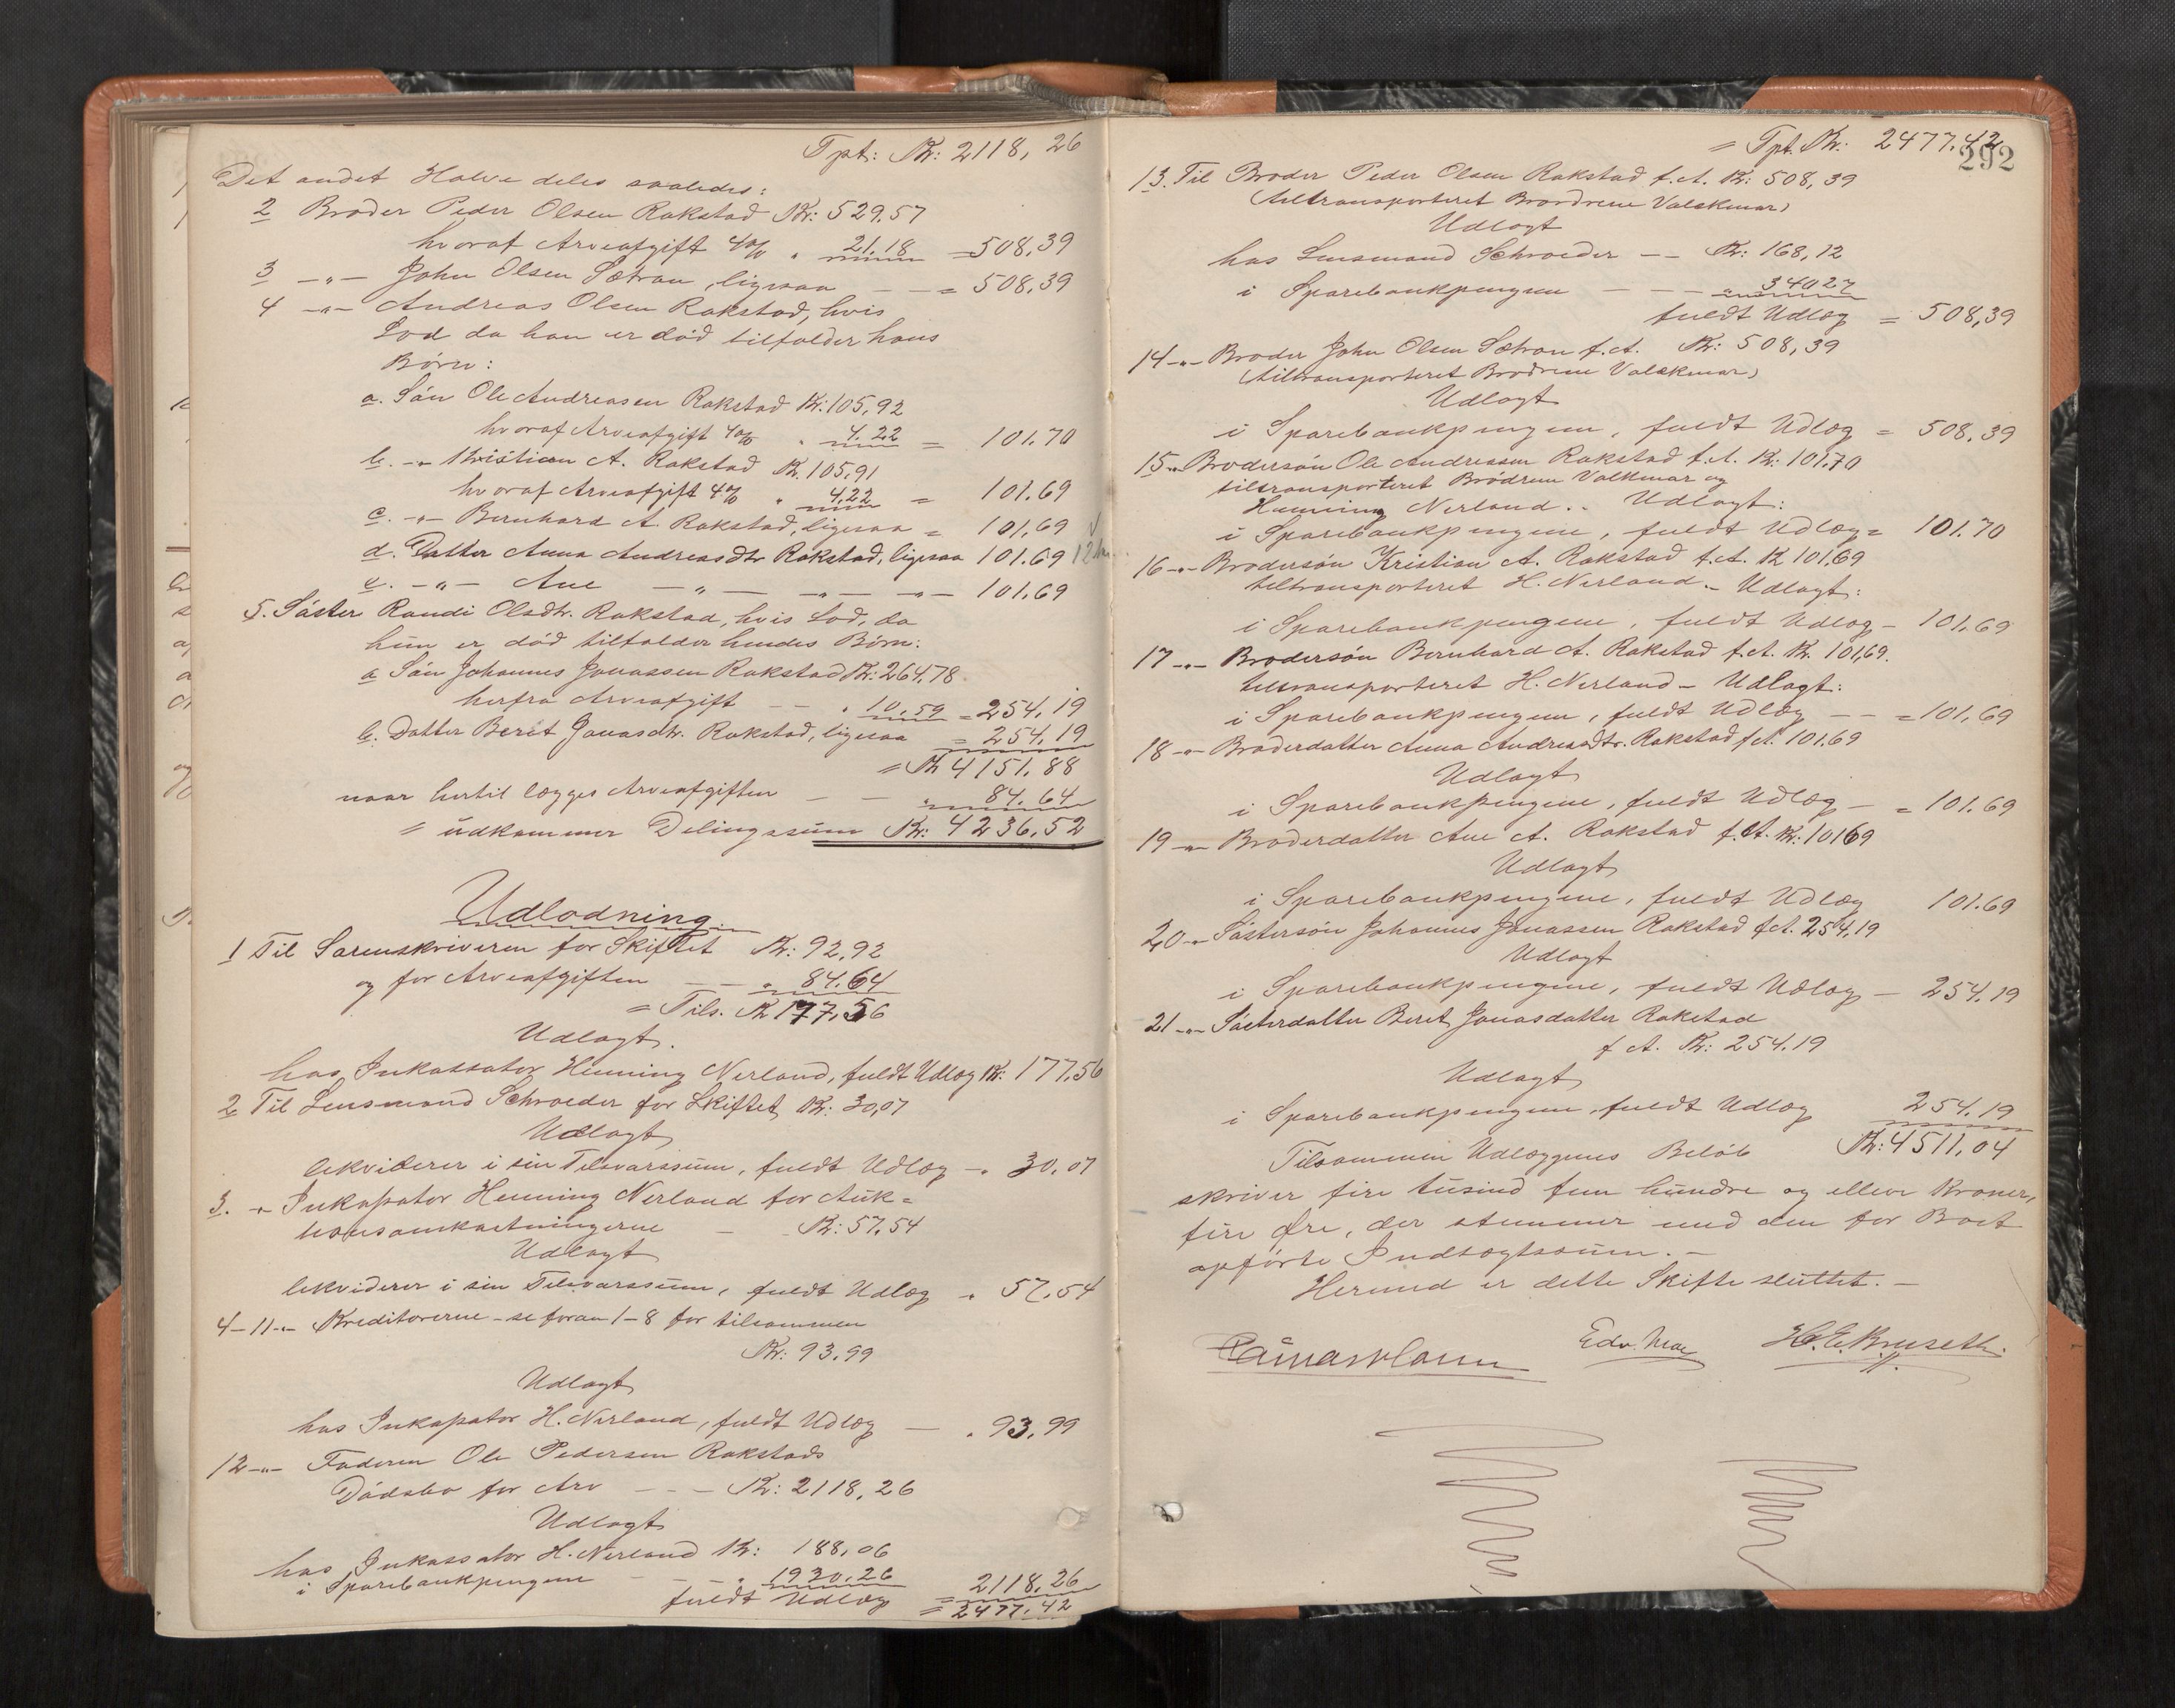 Tpt: Kr: 2118,26
Det andet Halve deles saaledes:
2 Broder Peder Olsen Rakstad Kr: 529.57
hvoraf Arveafgift 4% " 21.18 = 508,39
3 -"- John Olsen Sætran, ligesaa - - = 508,39
4 -"- Andreas Olsen Rakstad, hvis
Lod da han er död tilfalder hans
Börn:
a. Sön Ole Andreasen Rakstad Kr: 105,92
hvoraf Arveafgift 4% " 4.22 = 101.70
b. -"- Kristian A. Rakstad Kr. 105,91
hvoraf Arveafgift 4% " 4,22 = 101.69
c. -"- Bernhard A. Rakstad, ligesaa = 101,69
d. Datter Anna Andreasdtr Rakstad, ligesaa 101.69
e. -"- Ane -"- -"- -"- 101.69
5. Söster Randi Olsdtr. Rakstad, hvis Lod, da
hun er död tilfalder hendes Börn:
a Sön Johannes Jonassen Rakstad Kr: 264.78
herfra Arveafgift - - " 10,59 = 254,19
b. Datter Beret Jonasdtr. Rakstad, ligesaa = 254.19
= Kr 4151.88
naar hertil lægges Arveafgiften - - " 84.64
= udkommer Delingssum Kr: 4236,52
Udlodning
1 Til Sorenskriveren for Skiftet Kr: 92,92
og for Arveafgiften - - " 84.64
= Tils. Kr 177,56
Udlagt.
hos Inkassator Henning Nerland, fuldt Udlæg Kr: 177,56
2 Til Lensmand Schroeder for Skiftet Kr: 30,07
Udlagt
likviderer i sin Tilsvarssum, fuldt Udlæg - " 30,07
3. -"- Inkassator Henning Nerland for Auk=
tionsomkostningerne - Kr: 57,54
Udlagt
likviderer i sin Tilsvarssum, fuldt Udlæg " 57,54
4-11 -"- Kreditorerne - se foran 1-8 for tilsammen
Kr: 93,99
Udlagt
hos Inkassator H. Nerland, fuldt Udlæg - " 93,99
12 -"- Faderen Ole Pedersen Rakstads
Dödsbo for Arv - - - Kr: 2118,26
Udlagt
hos Inkassator H. Nerland Kr: 188,06
i Sparebankpengene - - - " 1930,26
fuldt Udlæg = 2118,26
= 2477.42
= Tpt. Kr: 2477.42
292
13. Til Broder Peder Olsen Rakstad f. A. Kr: 508,39
(tiltransporteret Brödrene Valskmar)
Udlagt
hos Lensmand Schroeder - - Kr: 168,12
i Sparebankpengene - - - " 340 27
fuldt Udlæg = 508,39
14 -"- Broder John Olsen Sætran f. A. Kr: 508,39
(tiltransporteret Brödrene Valskmar)
Udlagt
i Sparebankpengene, fuldt Udlæg = 508.39
15 -"- Brodersön Ole Andreasen Rakstad f. A. Kr: 101.70
tiltransporteret Brödrene Valskmar og
Henning Nerland. - Udlagt:
i Sparebankpengene, fuldt Udlæg = 101.70
16 -"- Brodersön Kristian A. Rakstad f. A. Kr 101.69
tiltransporteret H. Nerland. - Udlagt:
i Sparebankpengene, fuldt Udlæg - 101.69
17 -"- Brodersön Bernhard A. Rakstad f. A. Kr. 101,69.
tiltransporteret H. Nerland - Udlagt:
i Sparebankpengene, fuldt Udlæg - - = 101,69
18 -"- Broderdatter Anna Andreasdtr. Rakstad f. A. 101.69
Udlagt
i Sparebankpengene, fuldt Udlæg - = 101.69
19 -"- Broderdatter Ane A. Rakstad f. A. Kr: 101 69
Udlagt
i Sparebankpengene, fuldt Udlæg 101.69
20 -"- Söstersön Johannes Jonassen Rakstad f. A. 254.19
Udlagt
i Sparebankpengene, fuldt Udlæg - 254.19
21 -"- Sösterdatter Beret Jonasdatter Rakstad
f A. Kr: 254.19
Udlagt
i Sparebankpengene, fuldt Udlæg 254.19
Tilsammen Udlæggenes Belöb Kr: 4511,04
skriver fire tusind fem hundre og elleve Kroner,
fire Öre, der stemmer med den for Boet
opförte Indtægtssum. -
Hermed er dette Skifte sluttet. -
H. E. Kruseth.